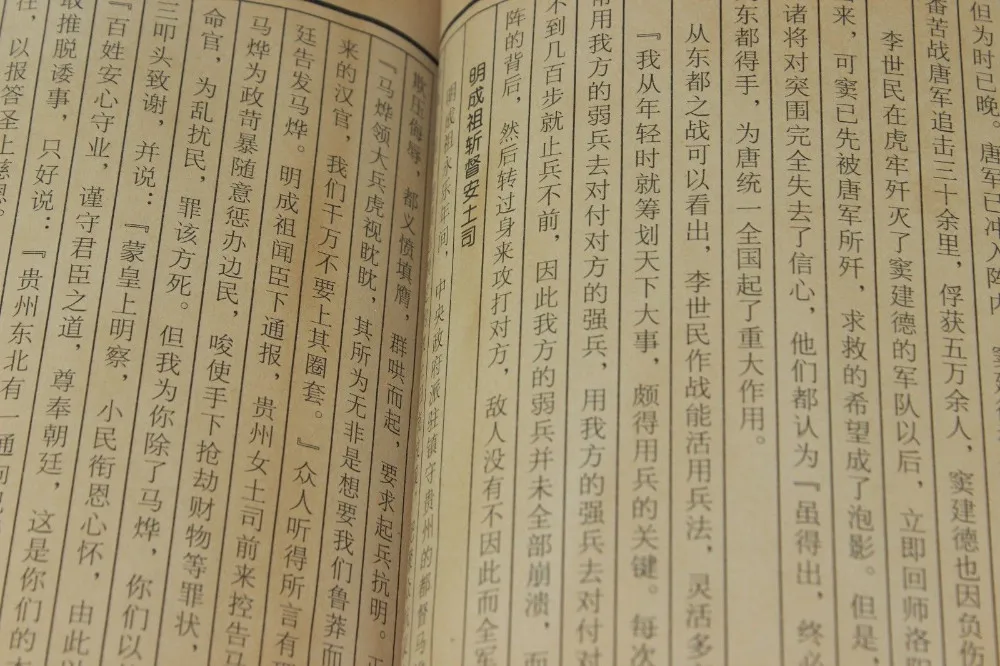 但为时已晚。唐军已冲入阵内
备苦战唐军追击三十余里，俘获五万余人，窦建德也因负伤
李世民在虎牢歼灭了窦建德的军队以后，立即回师洛
来，可窦已先被唐军所歼，求救的希望成了泡影。但是，
诸将对突围完全失去了信心，他们都认为『虽得出，终必
东都得手，为唐统一全国起了重大作用。
从东都之战可以看出，李世民作战能活用兵法，灵活多
『我从年轻时就筹划天下大事，颇得用兵的关键。每次
常用我方的弱兵去对付对方的强兵，用我方的强兵去对付对
不到几百步就止兵不前，因此我方的弱兵并未全部崩溃，而
阵的背后，然后转过身来攻打对方，敌人没有不因此而全军
明成祖斩督安土司
明成祖永乐年间，中央政府派驻镇守贵州的都督马
欺压侮辱，都义愤填膺，群哄而起，要求起兵抗明。正
『马烨领大兵虎视眈眈，其所为无非是想要我们鲁莽而
来的汉官，我们千万不要上其圈套。』众人听得所言有理
廷告发马烨。明成祖闻臣下通报，贵州女土司前来控告马
马烨为政苛暴随意惩办边民，唆使手下抢劫财物等罪状，
命官，为乱扰民，罪该方死。但我为你除了马烨，你们以
三叩头致谢，并说：『蒙皇上明察，小民衔恩心怀，由此以
『百姓安心守业，谨守君臣之道，尊奉朝廷，这是你们的本
敢推脱诿事，只好说：『贵州东北有一通
以报答圣上慈恩。